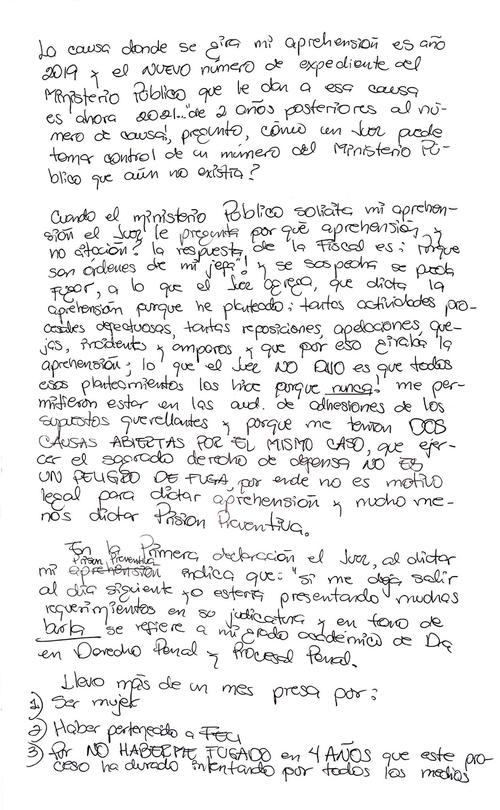 La causa donde se gira mi aprehensión es año
2019 y el NUEVO número de expediente del
Ministerio Público que le dan a esa causa
es "ahora 2021..." de 2 años posteriores al nú-
mero de causa!, pregunto, cómo un Juez puede
tomar control de un número del Ministerio Pú-
blico que aún no existía?
Cuando el ministerio Público solicita mi aprehen-
sión el Juez le pregunta por qué aprehensión y
no citación? la respuesta de la Fiscal es: "Porque
son órdenes de mi jefa"! y se sospecha se pueda
fugar, a lo que el Juez agrega, que dicta la
aprehensión porque he planteado: tantas actividades pro-
cesales defectuosas, tantas reposiciones, apelaciones, que-
jas, incidentes y amparos y que por eso giraba la
aprehensión; lo que el Juez NO DIJO es que todos
esos planteamientos los hice porque nunca! me per-
mitieron estar en las aud. de adhesiones de los
supuestos querellantes y porque me tenían DOS
CAUSAS ABIERTAS POR EL MISMO CASO, que ejer-
cer el sagrado derecho de defensa NO ES
UN PELIGRO DE FUGA por ende no es motivo
legal para dictar aprehensión y mucho me-
nos dictar Prisión Preventiva.
En la Primera declaración el Juez, al dictar
Prisión Preventiva
mi aprehensión indica que: "si me deja salir
al día siguiente yo estaría presentando muchos
requerimientos en su judicatura y en tono de
burla se refiere a mi grado académico de Da
en Derecho Penal y Procesal Penal.
Llevo más de un mes presa por:
1) Ser mujer
2) Haber pertenecido a FECI
3) Por NO HABERME FUGADO en 4 AÑOS que este pro-
ceso ha durado intentando por todos los medios